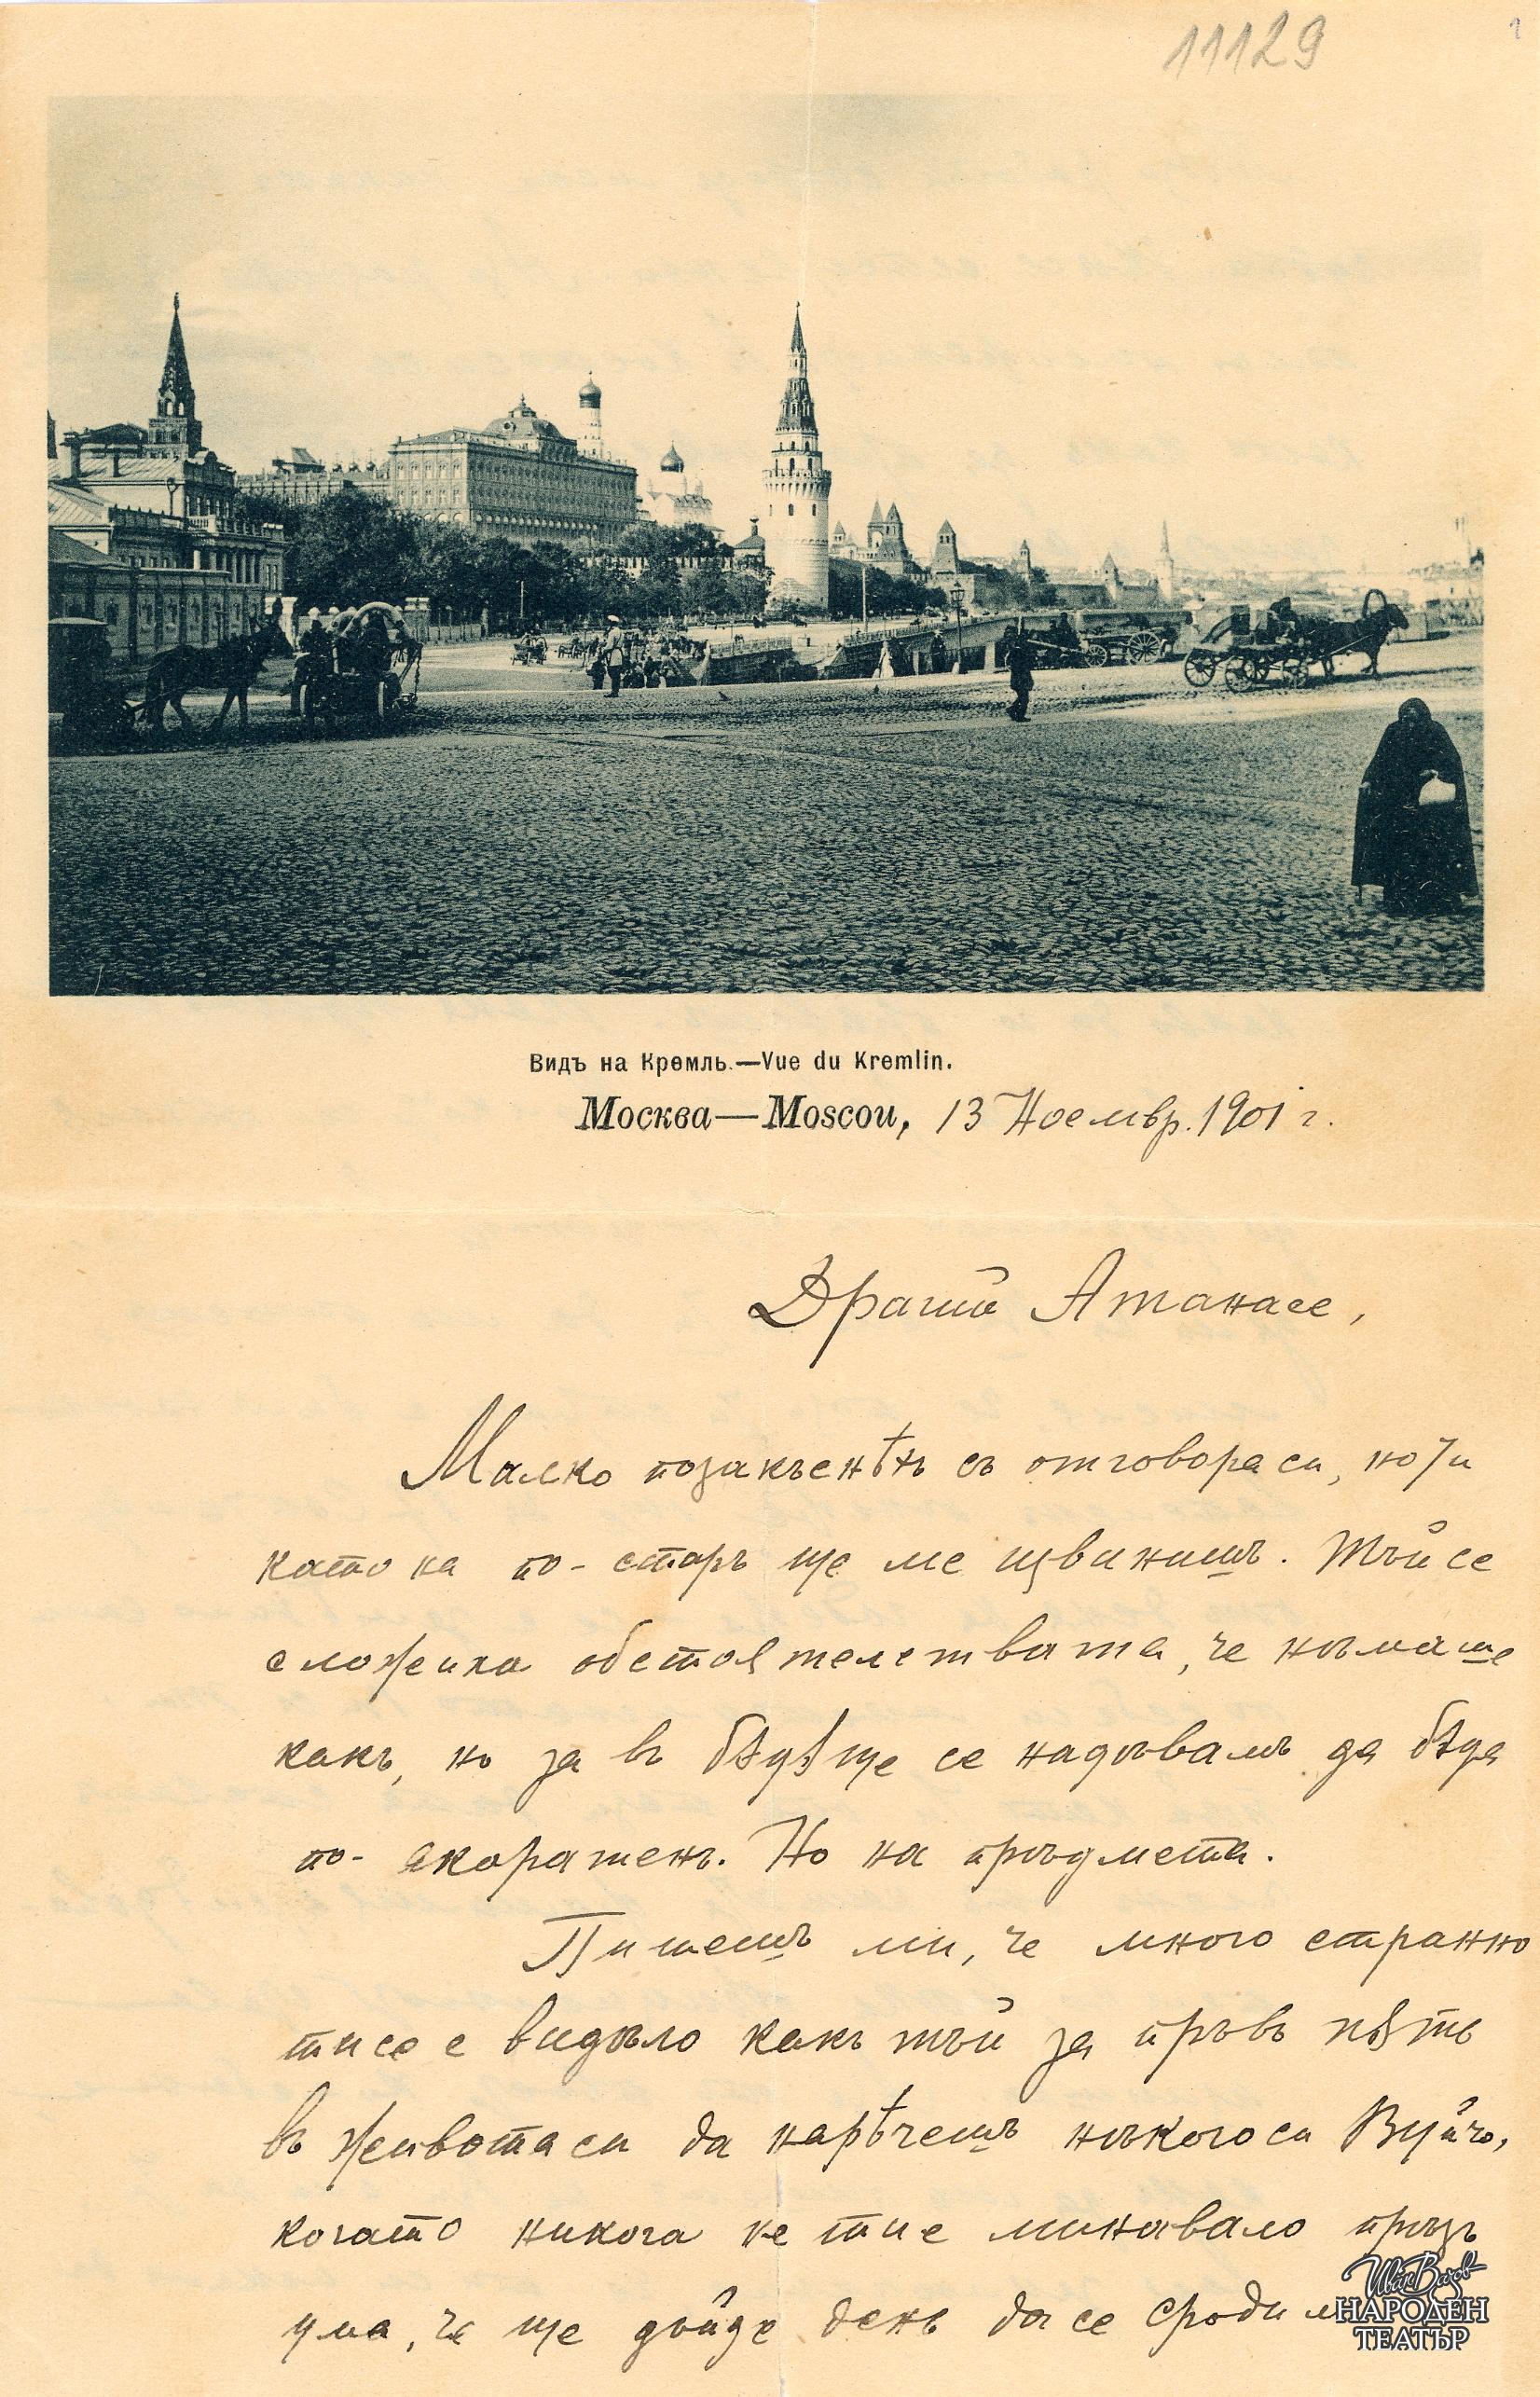 11129
1
Видъ на Кремль.—Vue du Kremlin.
Москва—Moscou, 13 Ноемвр. 1901 г.
Драгий Атанасе,
Малко позакъснѣхъ съ отговора си, но /и
като на по-старъ ще ме извинишъ. Тъй се
сложиха обстоятелствата, че нѣмаше
какъ, но за въ бѫдѫще се надѣвамъ да бѫда
по-акоратенъ. Но на прѣдмета.
Пишешъ ми, че много странно
ти се е видѣло какъ тъй за пръвъ пѫть
въ живота си да нарѣчешъ нѣкого си Вуйчо,
когато никога не ти е минавало прѣзъ
ума, че ще дойде день да се сродим
Иван Вазов
НАРОДЕН
ТЕАТЪР